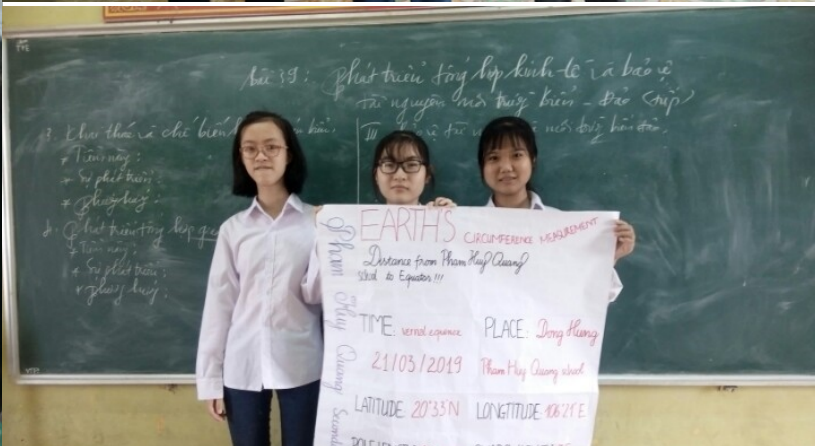 bài 39: phát triển tổng hợp kinh tế và bảo vệ
tài nguyên môi trường biển - Đảo (tiếp)
3. Khai thác và chế biến
* Tiềm năng:
* Sự phát triển:
* phương hướng:
phát triển tổng hợp
* Tiềm năng:
* Sự phát triển:
* phương hướng:
III
môi trường biển đảo.
EARTH'S CIRCUMFERENCE MEASUREMENT
Distance from Pham Huy Quang
School to Equator!!!
TIME: vernal equence
21/03/2019
PLACE: Dong Hung
Pham Huy Quang school
LATITUDE 20°33N LONGTITUDE 106°21'E
Pham Huy Quang Second